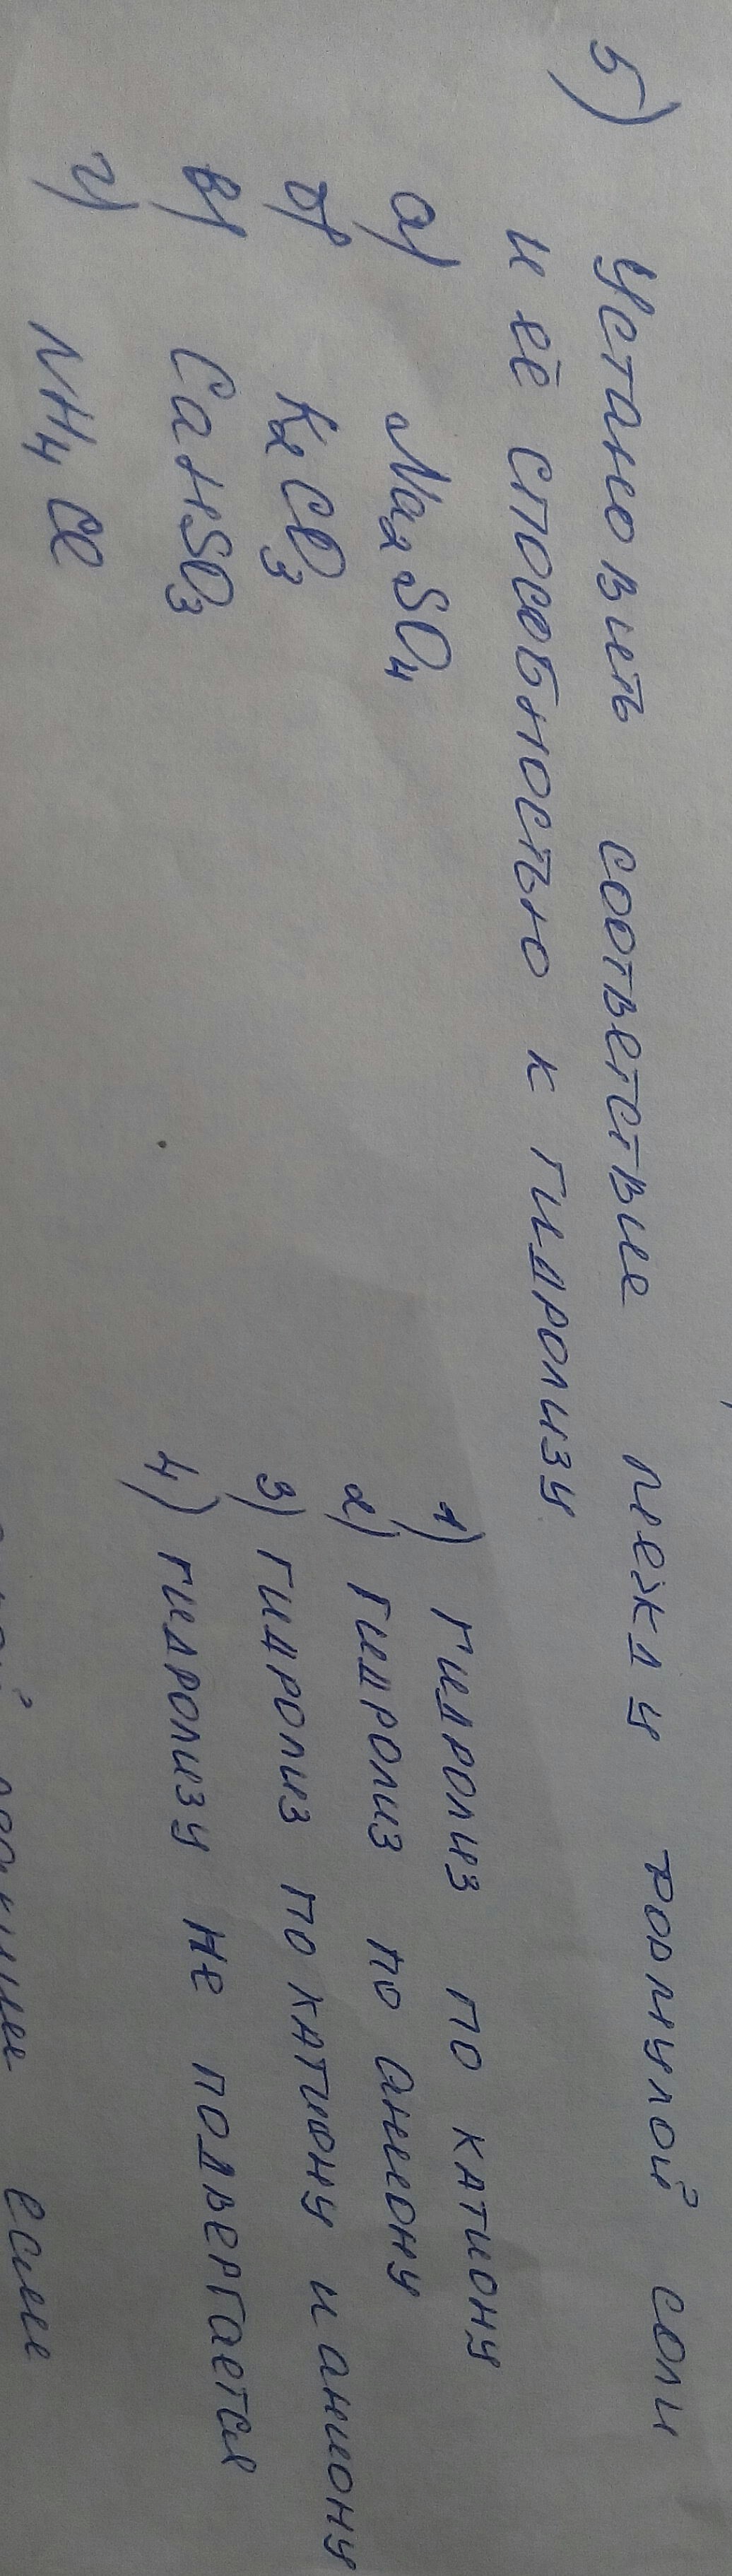 5) Установить соответствие между формулой соли
и её способностью к гидролизу
а) Na2SO4
б) K2CO3
в) CaHSO3
г) NH4Cl
1) гидролиз по катиону
2) гидролиз по аниону
3) гидролиз по катиону и аниону
4) гидролизу не подвергается
если